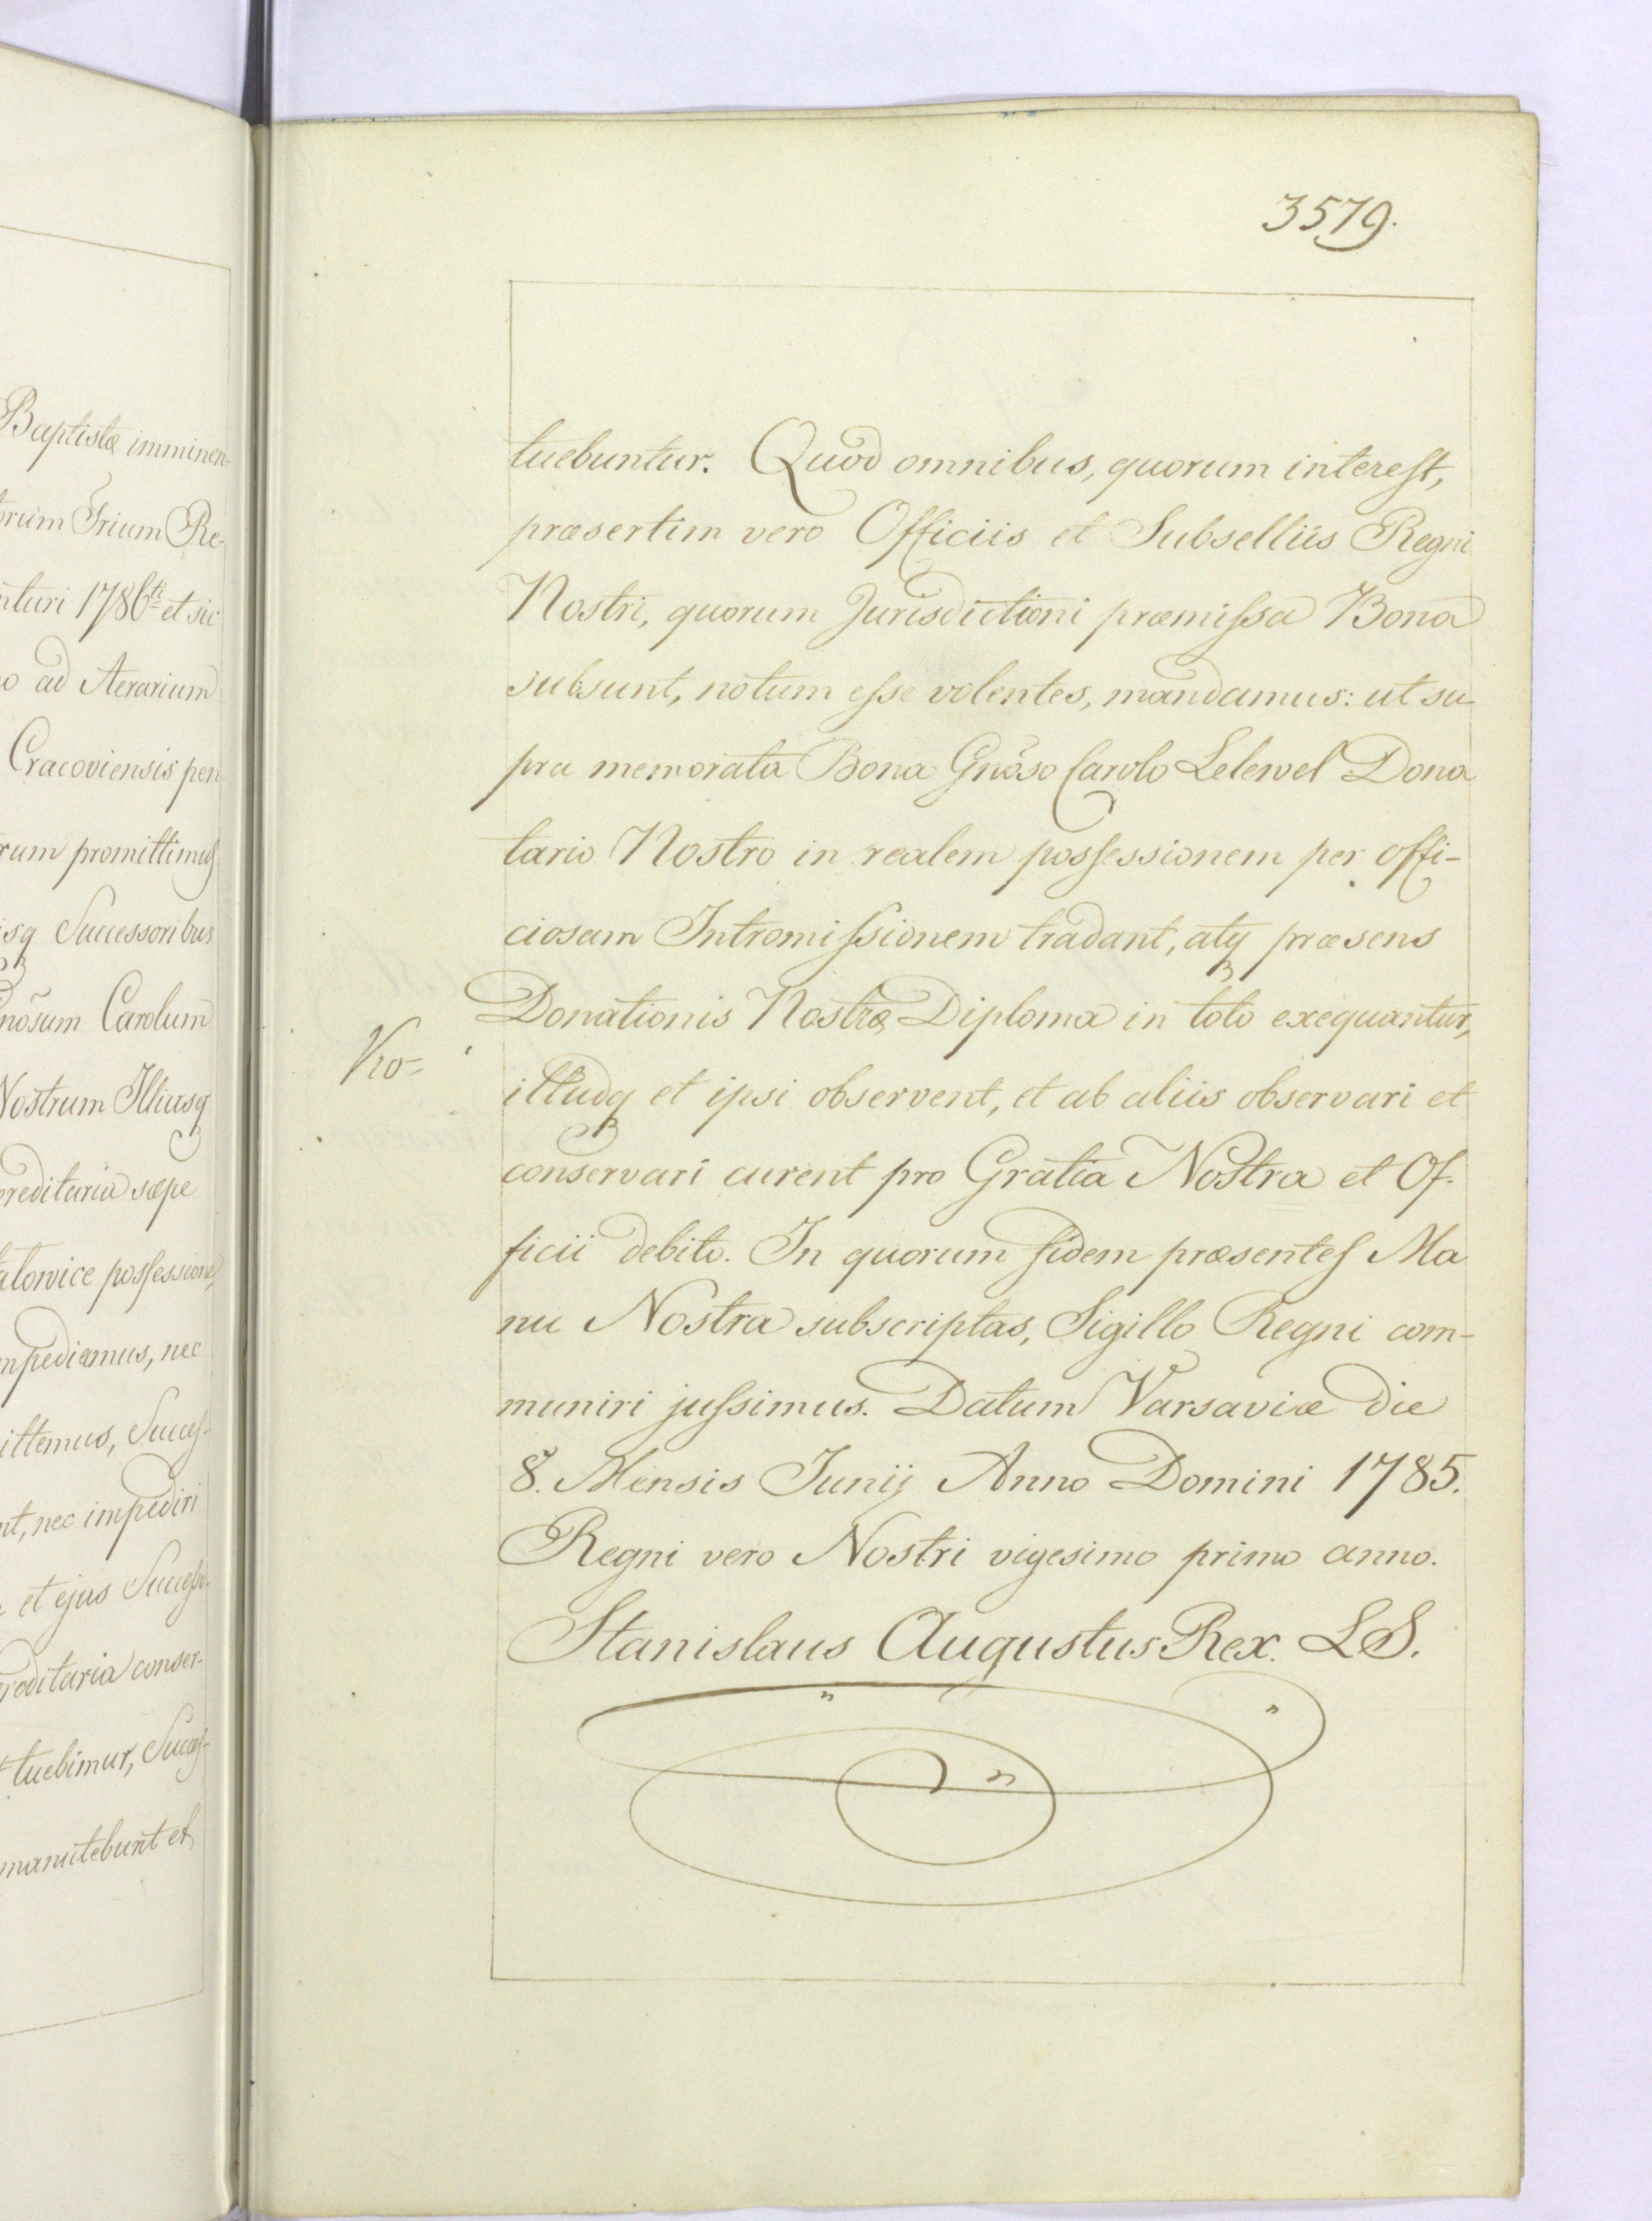 Baptistæ imminen-
orum Trium Re-
nturi 1786ti et sic
o ad Aerarium
Cracoviensis pen
rum promittimus
isq Successoribus
nõsum Carolum
Nostrum Illiusq
ereditaria sæpe
atowice possessione,
mpediamus, nec
ittemus, Succes-
nt, nec impediri
et ejus Successo-
reditaria conser-
tuebimur, Succes-
manutebunt et
3579.
tuebuntur. Quod omnibus, quorum interest,
præsertim vero Officiis et Subselliis Regni
Nostri, quorum Jurisdictioni præmissa Bona
subsunt, notum esse volentes, mandamus: ut su
pra memorata Bona Gnõso Carolo Lelewel Dona
tario Nostro in realem possessionem per offi-
ciosam Intromissionem tradant, atq præsens
Donationis Nostræ Diploma in toto exequantur,
Vro=
illudq et ipsi observent, et ab aliis observari et
conservari curent pro Gratia Nostra et Of-
ficii debito. In quorum fidem præsentes Ma
nu Nostra subscriptas, Sigillo Regni com-
muniri jussimus. Datum Varsaviæ die
8. Mensis Junij Anno Domini 1785.
Regni vero Nostri vigesimo primo anno.
Stanislaus Augustus Rex. LS.